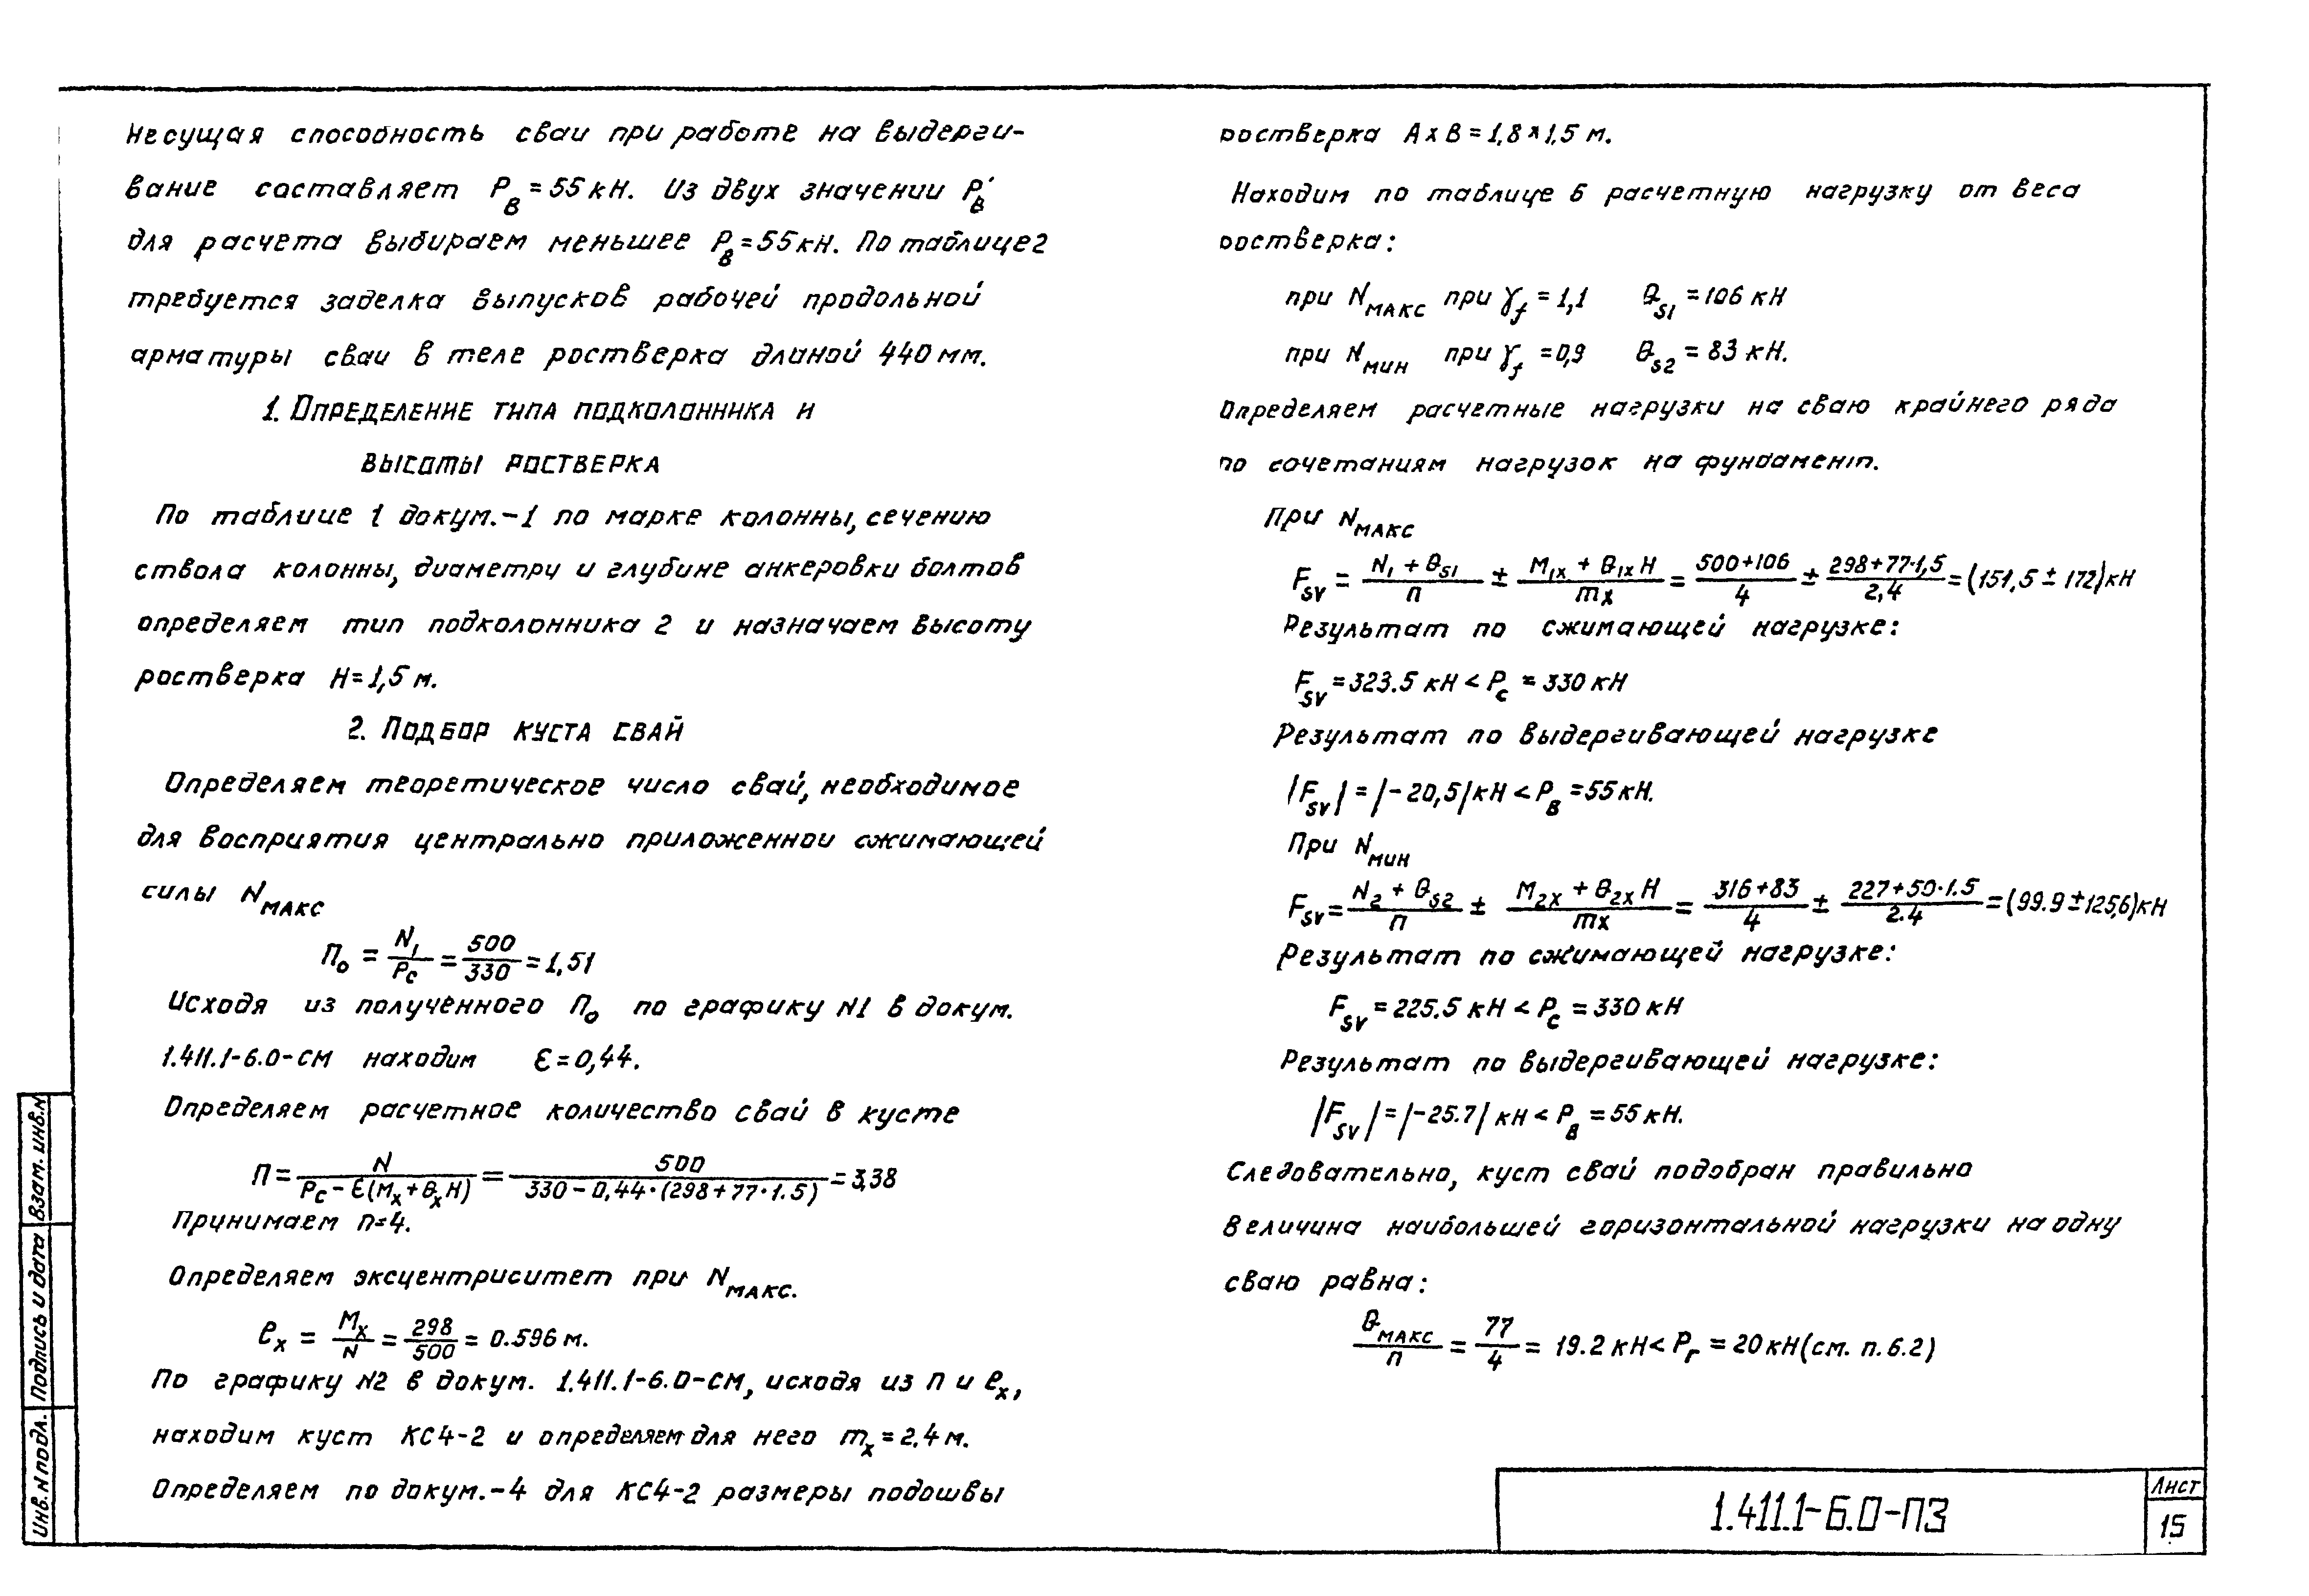 Несущая способность сваи при работе на выдерги-
вание составляет P_в = 55 кН. Из двух значении P'_в
для расчета выбираем меньшее P_в = 55 кН. По таблице 2
требуется заделка выпусков рабочей продольной
арматуры сваи в теле ростверка длиной 440 мм.
1. Определение типа подколонника и
высоты ростверка
По таблице 1 докум.-1 по марке колонны, сечению
ствола колонны, диаметру и глубине анкеровки болтов
определяем тип подколонника 2 и назначаем высоту
ростверка H=1,5 м.
2. Подбор куста свай
Определяем теоретическое число свай, необходимое
для восприятия центрально приложеннои сжимающей
силы N_МАКС
n_0 = N_1/P_c = 500/330 = 1,51
Исходя из полученного n_0 по графику N1 в докум.
1.411.1-6.0-СМ находим ε = 0,44.
Определяем расчетное количество свай в кусте
n = N/(P_c - ε(M_x + Q_x H)) = 500/(330 - 0,44·(298+77·1.5)) = 3,38
Принимаем n=4.
Определяем эксцентриситет при N_МАКС.
e_x = M_x/N = 298/500 = 0.596 м.
По графику N2 в докум. 1.411.1-6.0-СМ, исходя из n и e_x,
находим куст КС4-2 и определяем для него m_x = 2,4 м.
Определяем по докум.-4 для КС4-2 размеры подошвы
ростверка A x B = 1,8 x 1,5 м.
Находим по таблице 6 расчетную нагрузку от веса
ростверка:
при N_МАКС при γ_f = 1,1 Q_S1 = 106 кН
при N_МИН при γ_f = 0,9 Q_S2 = 83 кН.
Определяем расчетные нагрузки на сваю крайнего ряда
по сочетаниям нагрузок на фундамент.
При N_МАКС
F_SV = (N_1 + Q_S1)/n ± (M_1X + Q_1X H)/m_x = (500+106)/4 ± (298+77·1,5)/2,4 = (151,5 ± 172) кН
Результат по сжимающей нагрузке:
F_SV = 323.5 кН < P_c = 330 кН
Результат по выдергивающей нагрузке
|F_SV| = |-20,5| кН < P_в = 55 кН.
При N_МИН
F_SV = (N_2 + Q_S2)/n ± (M_2X + Q_2X H)/m_x = (316+83)/4 ± (227+50·1.5)/2.4 = (99.9 ± 125,6) кН
Результат по сжимающей нагрузке:
F_SV = 225.5 кН < P_c = 330 кН
Результат по выдергивающей нагрузке:
|F_SV| = |-25.7| кН < P_в = 55 кН.
Следовательно, куст свай подобран правильно
Величина наибольшей горизонтальной нагрузки на одну
сваю равна:
Q_МАКС/n = 77/4 = 19.2 кН < P_г = 20 кН (см. п. 6.2)
1.411.1-6.0-ПЗ
Лист
15
Взам. инв. N
Подпись и дата
Инв. N подл.